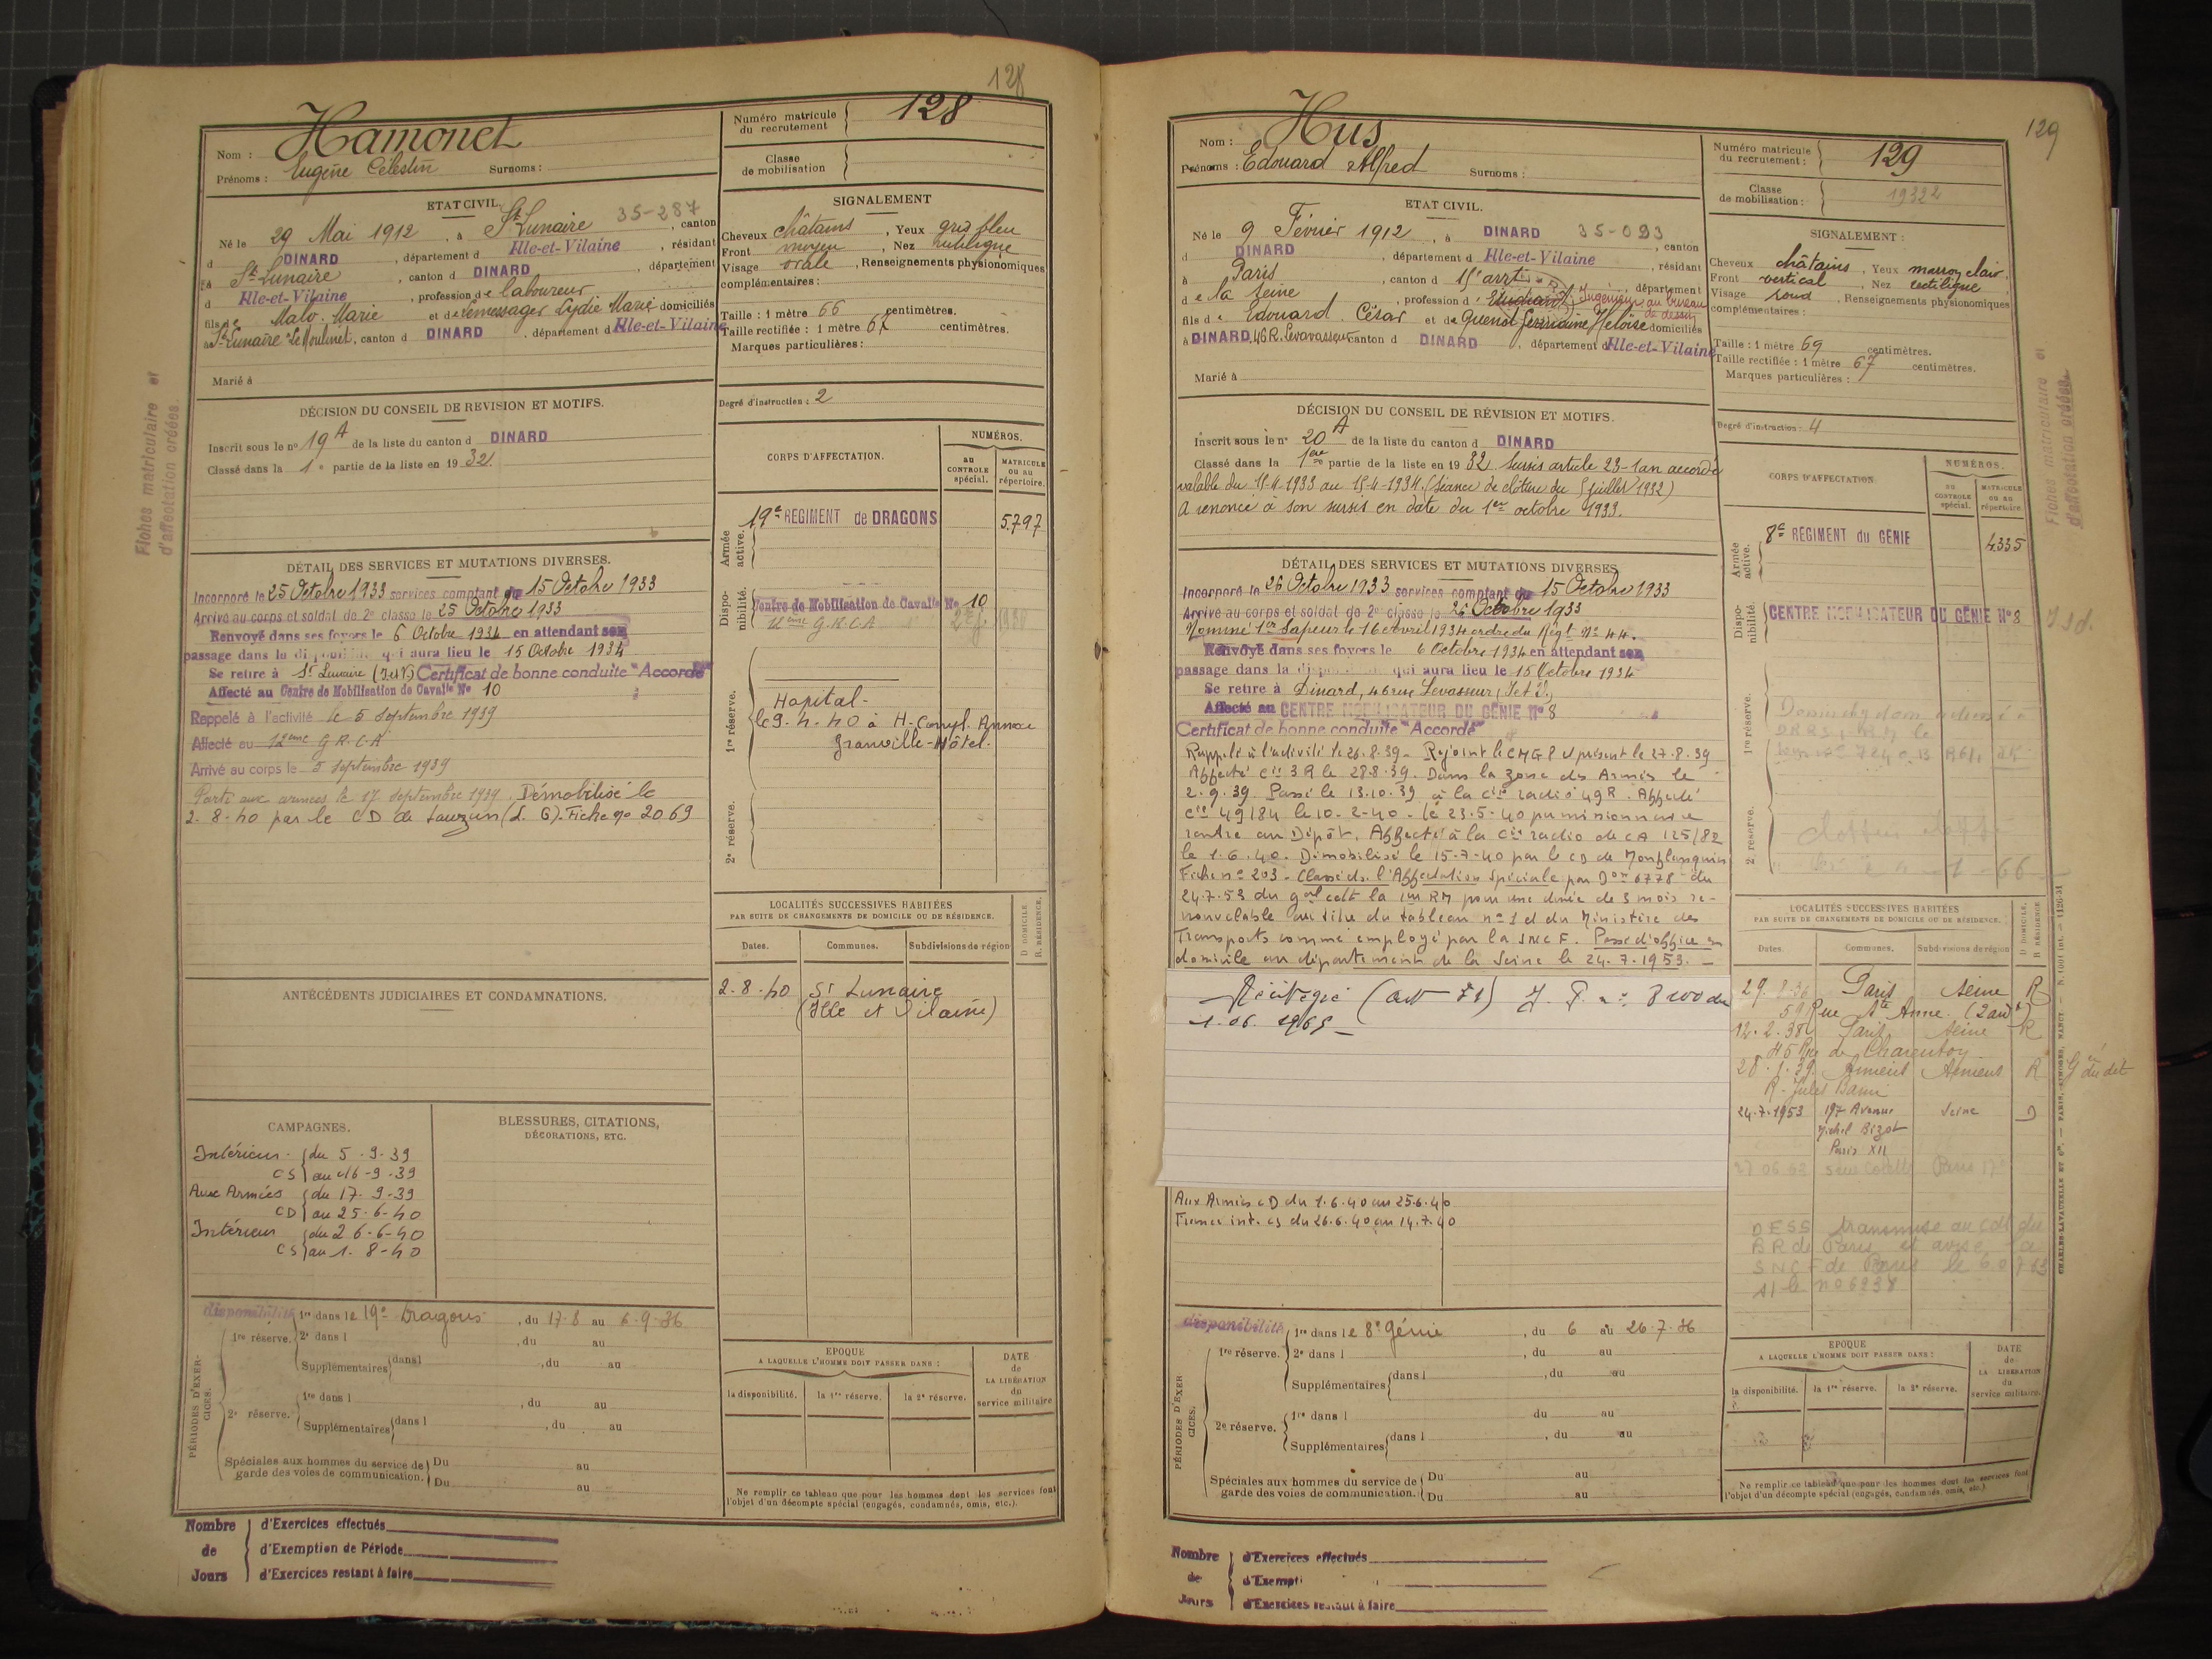 128
Nom : Hamonet
Prénoms : Eugène Célestin Surnoms :
Numéro matricule du recrutement 128
Classe de mobilisation
ETAT CIVIL.
35-287
Né le 29 Mai 1912, à St Lunaire, canton
d DINARD, département d Ille-et-Vilaine, résidant
à St Lunaire, canton d DINARD, département
d Ille-et-Vilaine, profession de laboureur
fils de Malo Marie et de Lemessager Lydie Marie domiciliés
à St Lunaire "Le Moulinet", canton d DINARD, département d Ille-et-Vilaine
Marié à
SIGNALEMENT
Cheveux châtains, Yeux gris bleu
Front moyen, Nez rectiligne
Visage ovale, Renseignements physionomiques
complémentaires :
Taille : 1 mètre 66 centimètres.
Taille rectifiée : 1 mètre 67 centimètres.
Marques particulières :
Degré d'instruction : 2
DÉCISION DU CONSEIL DE REVISION ET MOTIFS.
Inscrit sous le no 19 A de la liste du canton d DINARD
Classé dans la 1e partie de la liste en 1932.
Fiches matriculaire et
d'affectation créées.
CORPS D'AFFECTATION.
NUMÉROS.
AU CONTROLE spécial.
MATRICULE ou au répertoire.
Armée active.
19e REGIMENT de DRAGONS 5797
Disponibilité.
Centre de Mobilisation de Cavalie No 10
G.R.C.A
1re réserve.
Hopital -
le 9-4-40 à H. Compl. Annexe
Granville-Hôtel.
2e réserve.
DÉTAIL DES SERVICES ET MUTATIONS DIVERSES.
Incorporé le 25 Octobre 1933 services comptant du 15 Octobre 1933
Arrivé au corps et soldat de 2e classe le 25 Octobre 1933
Renvoyé dans ses foyers le 6 Octobre 1934 en attendant son
passage dans la disponibilité qui aura lieu le 15 Octobre 1934
Se retire à St Lunaire (I et V) Certificat de bonne conduite "Accordé"
Affecté au Centre de Mobilisation de Cavalie No 10
Rappelé à l'activité le 5 septembre 1939
Affecté au 12eme G.R.C.A
Arrivé au corps le 5 septembre 1939
Parti aux armées le 17 septembre 1939. Démobilisé le
2-8-40 par le CD de Lauzun (L.G). Fiche no 2069
LOCALITÉS SUCCESSIVES HABITÉES
PAR SUITE DE CHANGEMENTS DE DOMICILE OU DE RÉSIDENCE.
D DOMICILE. R. RÉSIDENCE.
Dates. Communes. Subdivisions de région
2-8-40 St Lunaire
(Ille et Vilaine)
ANTÉCÉDENTS JUDICIAIRES ET CONDAMNATIONS.
CAMPAGNES.
Intérieur - du 5-9-39
CS au 16-9-39
Aux Armées du 17-9-39
CD au 25-6-40
Intérieur du 26-6-40
CS au 1-8-40
BLESSURES, CITATIONS,
DÉCORATIONS, ETC.
PÉRIODES D'EXERCICES.
disponibilité
1re réserve. 1re dans le 19e Dragons, du 17-8 au 6-9-36
2e dans l , du au
Supplémentaires dans l , du au
2e réserve. 1re dans l , du au
Supplémentaires dans l , du au
Spéciales aux hommes du service de Du au
garde des voies de communication. Du au
EPOQUE
A LAQUELLE L'HOMME DOIT PASSER DANS :
la disponibilité. la 1re réserve. la 2e réserve.
DATE de LA LIBÉRATION du service militaire
Ne remplir ce tableau que pour les hommes dont les services font
l'objet d'un décompte spécial (engagés, condamnés, omis, etc.).
Nombre de Jours
d'Exercices effectués
d'Exemption de Période
d'Exercices restant à faire
129
Nom : Hus
Prénoms : Edouard Alfred Surnoms :
Numéro matricule du recrutement : 129
Classe de mobilisation : 1933 2
ETAT CIVIL.
Né le 9 Février 1912, à DINARD 35-093
d DINARD, département d Ille-et-Vilaine, canton, résidant
à Paris, canton d 15e arrt, département
de la Seine, profession d' Etudiant Ingénieur au bureau de dessin
fils de Edouard César et de Quenot Germaine Héloïse domiciliés
à DINARD, 46 R. Levavasseur canton d DINARD, département d Ille-et-Vilaine
Marié à
SIGNALEMENT :
Cheveux châtains, Yeux marron clair.
Front vertical, Nez rectiligne
Visage rond, Renseignements physionomiques
complémentaires :
Taille : 1 mètre 69 centimètres.
Taille rectifiée : 1 mètre 67 centimètres.
Marques particulières :
Degré d'instruction : 4
DÉCISION DU CONSEIL DE RÉVISION ET MOTIFS.
Inscrit sous le no 20 A de la liste du canton d DINARD
Classé dans la 1ere partie de la liste en 1932 Sursis article 23-1 an accordé
valable du 15-4-1933 au 15-4-1934. (séance de clôture du 5 juillet 1932)
A renoncé à son sursis en date du 1er octobre 1933.
Fiches matriculaire et
d'affectation créées.
CORPS D'AFFECTATION
NUMÉROS.
AU CONTROLE spécial.
MATRICULE ou au répertoire.
Armée active.
8e REGIMENT du GENIE 4335
Disponibilité.
CENTRE MOBILISATEUR DU GÉNIE No 8
1re réserve.
2e réserve.
DÉTAIL DES SERVICES ET MUTATIONS DIVERSES
Incorporé le 26 Octobre 1933 services comptant du 15 Octobre 1933
Arrivé au corps et soldat de 2e classe le 26 Octobre 1933
Nommé 1er Sapeur le 16 avril 1934 ordre du Régt No 44.
Renvoyé dans ses foyers le 6 Octobre 1934 en attendant son
passage dans la disponibilité qui aura lieu le 15 Octobre 1934
Se retire à Dinard, 46 rue Levasseur, I et V.
Affecté au CENTRE MOBILISATEUR DU GÉNIE No 8
Certificat de bonne conduite "Accordé"
Rappelé à l'activité le 26-8-39 - Rejoint le CMG 8 et présent le 27-8-39
Affecté cie 3R le 28-8-39. Dans la zone des Armées le
2-9-39 Passé le 13-10-39 à la cie radio 49R. Affecté
cie 49/84 le 10-2-40 - le 23-5-40 permissionnaire
rentre au Dépôt. Affecté à la cie radio de CA 125/82
le 1-6-40. Démobilisé le 15-7-40 par le CD de Monflanquin
Fiche no 203 - Classé ds. l'Affectation Spéciale par Don 6778 du
24-7-53 du gal cdt la 1ere RM pour une durée de 3 mois re-
nouvelable au titre du tableau no 1 et du Ministère des
Transports comme employé par la SNCF. Passé d'office en
domicile au département de la Seine le 24-7-1953. -
1-06 1965 -
Aux Armées CD du 1-6-40 au 25-6-40
France int. CS du 26-6-40 au 14-7-40
LOCALITÉS SUCCESSIVES HABITÉES
PAR SUITE DE CHANGEMENTS DE DOMICILE OU DE RÉSIDENCE.
D DOMICILE. R RÉSIDENCE
Dates. Communes. Subdivisions de région
29-8-36 Paris Seine R
59 Rue Ste Anne. (2 arrt)
12-2-38 Paris Seine R
45 Rue de Charenton
28-1-39 Amiens Amiens R
R. Jules Barni
24-7-1953 197 Avenue Seine D
Michel Bizot
Paris XII
DESS transmise au Cdt du
BR de Paris et avise la
SNCF de Paris
no 6238
CHARLES-LAVAUZELLE ET Cie. — PARIS, LIMOGES, NANCY.
PÉRIODES D'EXERCICES.
disponibilité
1re réserve. 1re dans le 8e Génie, du 6 au 26-7-36
2e dans l , du au
Supplémentaires dans l , du au
2e réserve. 1re dans l du au
Supplémentaires dans l , du au
Spéciales aux hommes du service de Du au
garde des voies de communication. Du au
EPOQUE
A LAQUELLE L'HOMME DOIT PASSER DANS :
la disponibilité. la 1re réserve. la 2e réserve.
DATE de LA LIBÉRATION du service militaire.
Ne remplir ce tableau que pour les hommes dont les services font
l'objet d'un décompte spécial (engagés, condamnés, omis, etc.)
Nombre de Jours
d'Exercices effectués
d'Exempti
d'Exercices restant à faire